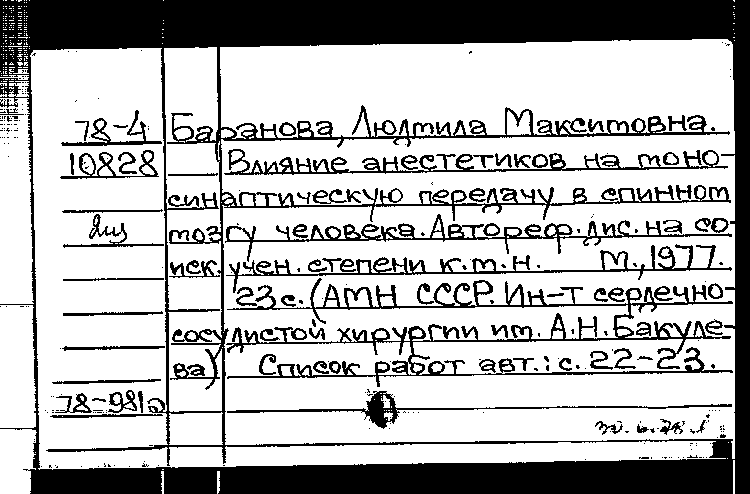 78-4 Баранова, Людмила Максимовна.
10828 Влияние анестетиков на моно-
синаптическую передачу в спинном
мозгу человека. Автореф. дис. на со-
иск. учен. степени к.м.н. М., 1977.
23 с. (АМН СССР. Ин-т сердечно-
сосудистой хирургии им. А.Н. Бакуле-
ва) Список работ авт.: с. 22-23.
78-981